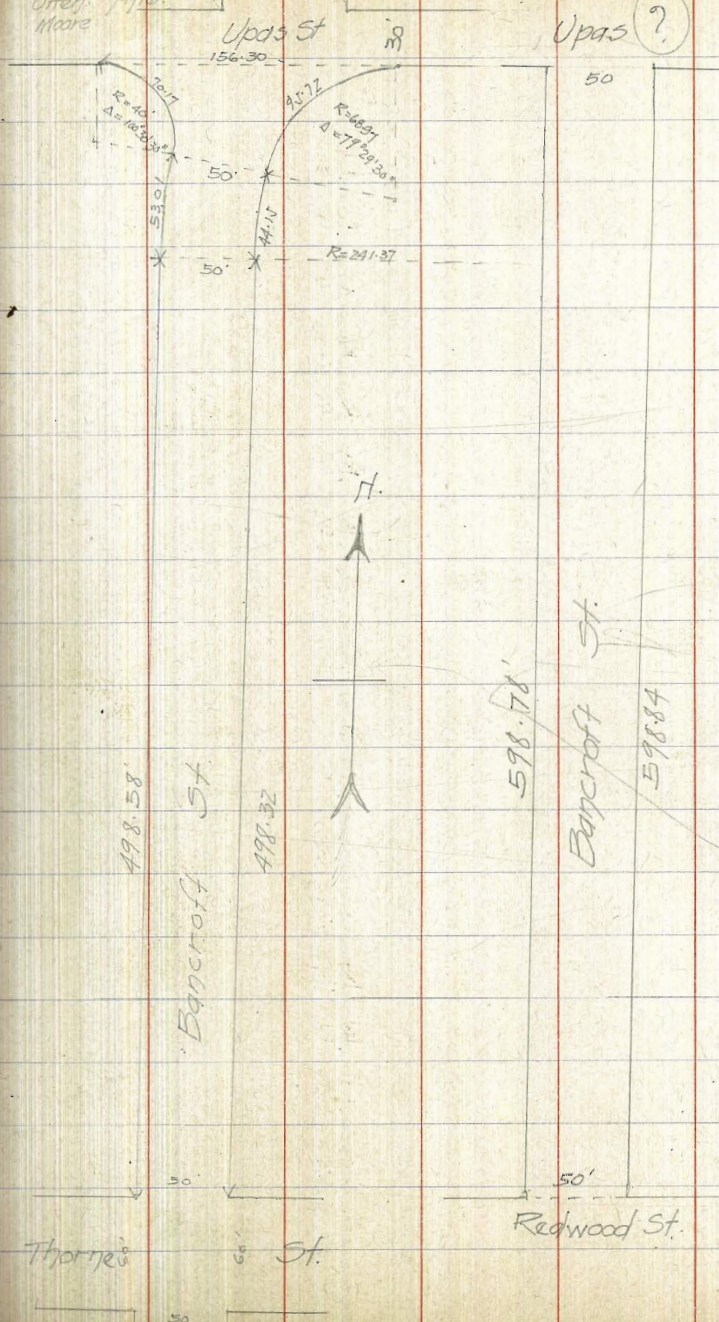 Moore
Upas St
30'
Upas
?
156.30
50
70.17
R=40'
Δ=100°30'30"
95.72
R=68.97
Δ=79°29'30"
50'
53.01
44.15
50'
R=241.37
N.
498.58'
Bancroft St.
498.32
598.78'
Bancroft St.
598.84
50
50'
Redwood St.
Thorne St.
60'
60'
50